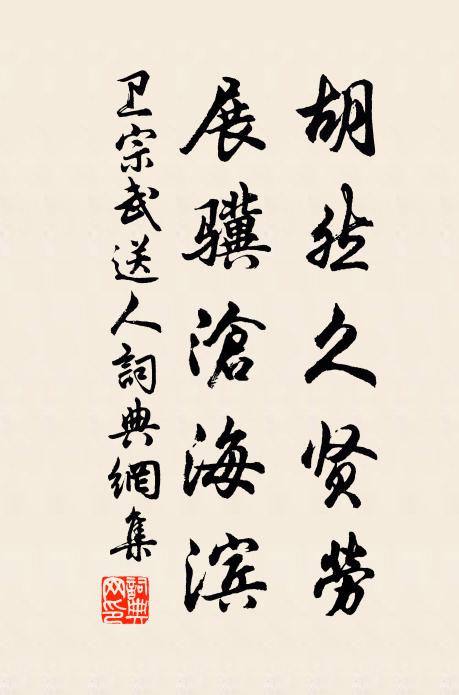 胡然久贤劳
展骥沧海滨
卫宗武送人詞典網集
詞典網印